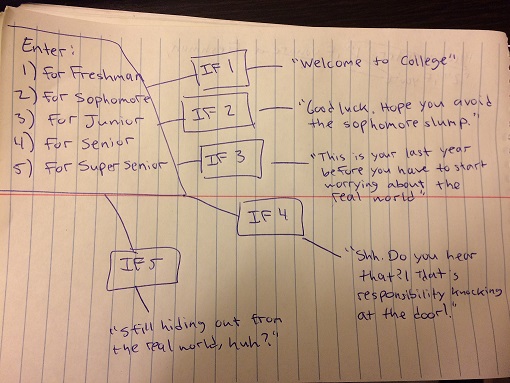 Enter:
1) for Freshman
2) for Sophomore
3) for Junior
4) for Senior
5) for Super Senior
IF 1
"Welcome to College"
IF 2
"Good luck. Hope you avoid
the sophomore slump."
IF 3
"This is your last year
before you have to start
worrying about the
real world"
IF 4
"Shh. Do you hear
that?! That's
responsibility knocking
at the door!"
IF 5
"Still hiding out from
the real world, huh?"